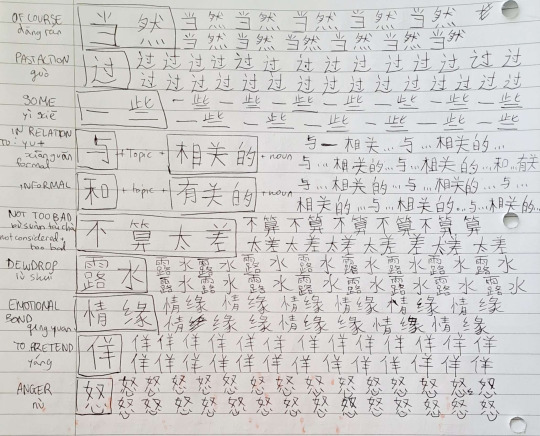 OF COURSE 当然 当然 当然 当然 当然 当然 当然
dāng rán 当然 当然 当然 当然 当然 当然
PAST ACTION 过 过 过 过 过 过 过 过 过 过 过 过 过 过 过
guò 过 过 过 过 过 过 过 过 过 过 过 过 过 过
SOME 一些 一些 一些 一些 一些 一些 一些 一些
yì xiē 一些 一些 一些 一些 一些 一些 一些
IN RELATION 与 + Topic + 相关的 + noun 与一相关...与...相关的...
TO: yǔ + xiāng guān formal 与...相关的...与...相关的...和...有关
INFORMAL 和 + topic + 有关的 + noun 的...和...有关的...和...有关的...与...
相关的...与...相关的...与...相关的...
NOT TOO BAD 不算太差 不算 不算 不算 不算 不算 不算
not considered too bad 太差 太差 太差 太差 太差 太差 太差
DEWDROP 露水 露水 露水 露水 露水 露水 露水 露水
lù shuǐ 露水 露水 露水 露水 露水 露水 露水
EMOTIONAL 情缘 情缘 情缘 情缘 情缘 情缘 情缘
BOND qíng yuán 情 缘 缘 情缘 情缘 情缘
TO PRETEND 佯 佯 佯 佯 佯 佯 佯 佯 佯 佯 佯 佯 佯 佯
yáng 佯 佯 佯 佯 佯 佯 佯 佯 佯 佯 佯 佯 佯
ANGER 怒 怒 怒 怒 怒 怒 怒 怒 怒 怒 怒 怒 怒 怒 怒
nù 怒 怒 怒 怒 怒 怒 怒 怒 怒 怒 怒 怒 怒 怒